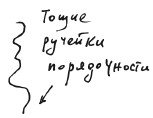 Тощие
ручейки
порядочности